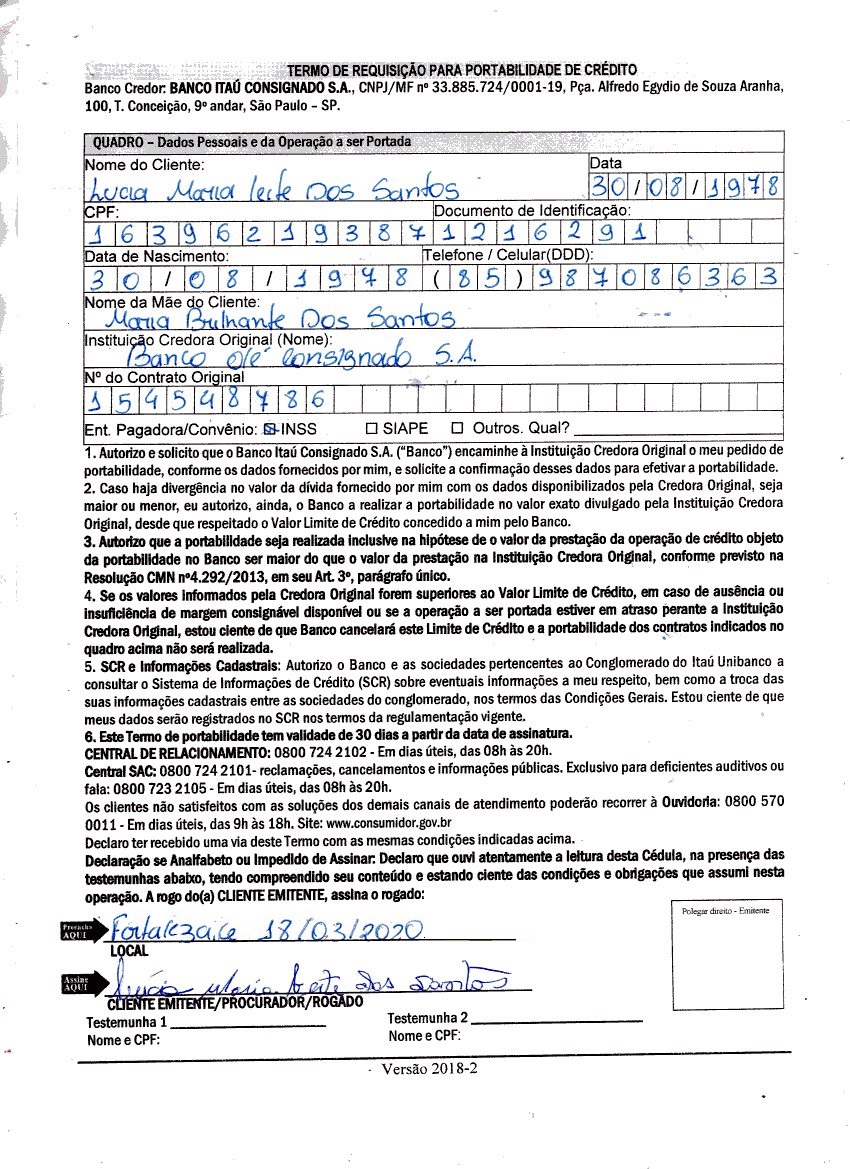 TERMO DE REQUISIÇÃO PARA PORTABILIDADE DE CRÉDITO
Banco Credor: BANCO ITAÚ CONSIGNADO S.A., CNPJ/MF nº 33.885.724/0001-19, Pça. Alfredo Egydio de Souza Aranha,
100, T. Conceição, 9º andar, São Paulo – SP.
QUADRO – Dados Pessoais e da Operação a ser Portada
Nome do Cliente: Data
Lucia Maria leite Dos Santos 30/08/1978
CPF: Documento de Identificação:
16396219387 1216291
Data de Nascimento: Telefone / Celular(DDD):
30/08/1978 (85)987086363
Nome da Mãe do Cliente:
Maria Brilhante Dos Santos
Instituição Credora Original (Nome):
Banco olé consignado S.A.
Nº do Contrato Original
154548786
Ent. Pagadora/Convênio: ☒ INSS ☐ SIAPE ☐ Outros. Qual?
1. Autorizo e solicito que o Banco Itaú Consignado S.A. (“Banco”) encaminhe à Instituição Credora Original o meu pedido de
portabilidade, conforme os dados fornecidos por mim, e solicite a confirmação desses dados para efetivar a portabilidade.
2. Caso haja divergência no valor da dívida fornecido por mim com os dados disponibilizados pela Credora Original, seja
maior ou menor, eu autorizo, ainda, o Banco a realizar a portabilidade no valor exato divulgado pela Instituição Credora
Original, desde que respeitado o Valor Limite de Crédito concedido a mim pelo Banco.
3. Autorizo que a portabilidade seja realizada inclusive na hipótese de o valor da prestação da operação de crédito objeto
da portabilidade no Banco ser maior do que o valor da prestação na Instituição Credora Original, conforme previsto na
Resolução CMN nº4.292/2013, em seu Art. 3º, parágrafo único.
4. Se os valores informados pela Credora Original forem superiores ao Valor Limite de Crédito, em caso de ausência ou
insuficiência de margem consignável disponível ou se a operação a ser portada estiver em atraso perante a Instituição
Credora Original, estou ciente de que Banco cancelará este Limite de Crédito e a portabilidade dos contratos indicados no
quadro acima não será realizada.
5. SCR e Informações Cadastrais: Autorizo o Banco e as sociedades pertencentes ao Conglomerado do Itaú Unibanco a
consultar o Sistema de Informações de Crédito (SCR) sobre eventuais informações a meu respeito, bem como a troca das
suas informações cadastrais entre as sociedades do conglomerado, nos termos das Condições Gerais. Estou ciente de que
meus dados serão registrados no SCR nos termos da regulamentação vigente.
6. Este Termo de portabilidade tem validade de 30 dias a partir da data de assinatura.
CENTRAL DE RELACIONAMENTO: 0800 724 2102 - Em dias úteis, das 08h às 20h.
Central SAC: 0800 724 2101- reclamações, cancelamentos e informações públicas. Exclusivo para deficientes auditivos ou
fala: 0800 723 2105 - Em dias úteis, das 08h às 20h.
Os clientes não satisfeitos com as soluções dos demais canais de atendimento poderão recorrer à Ouvidoria: 0800 570
0011 - Em dias úteis, das 9h às 18h. Site: www.consumidor.gov.br
Declaro ter recebido uma via deste Termo com as mesmas condições indicadas acima.
Declaração se Analfabeto ou Impedido de Assinar: Declaro que ouvi atentamente a leitura desta Cédula, na presença das
testemunhas abaixo, tendo compreendido seu conteúdo e estando ciente das condições e obrigações que assumi nesta
operação. A rogo do(a) CLIENTE EMITENTE, assina o rogado:
Polegar direito - Emitente
Preencha
AQUI
Fortaleza,ce 18/03/2020
LOCAL
Assine
AQUI
Lucia Maria Leite Dos Santos
CLIENTE EMITENTE/PROCURADOR/ROGADO
Testemunha 1 Testemunha 2
Nome e CPF: Nome e CPF:
Versão 2018-2